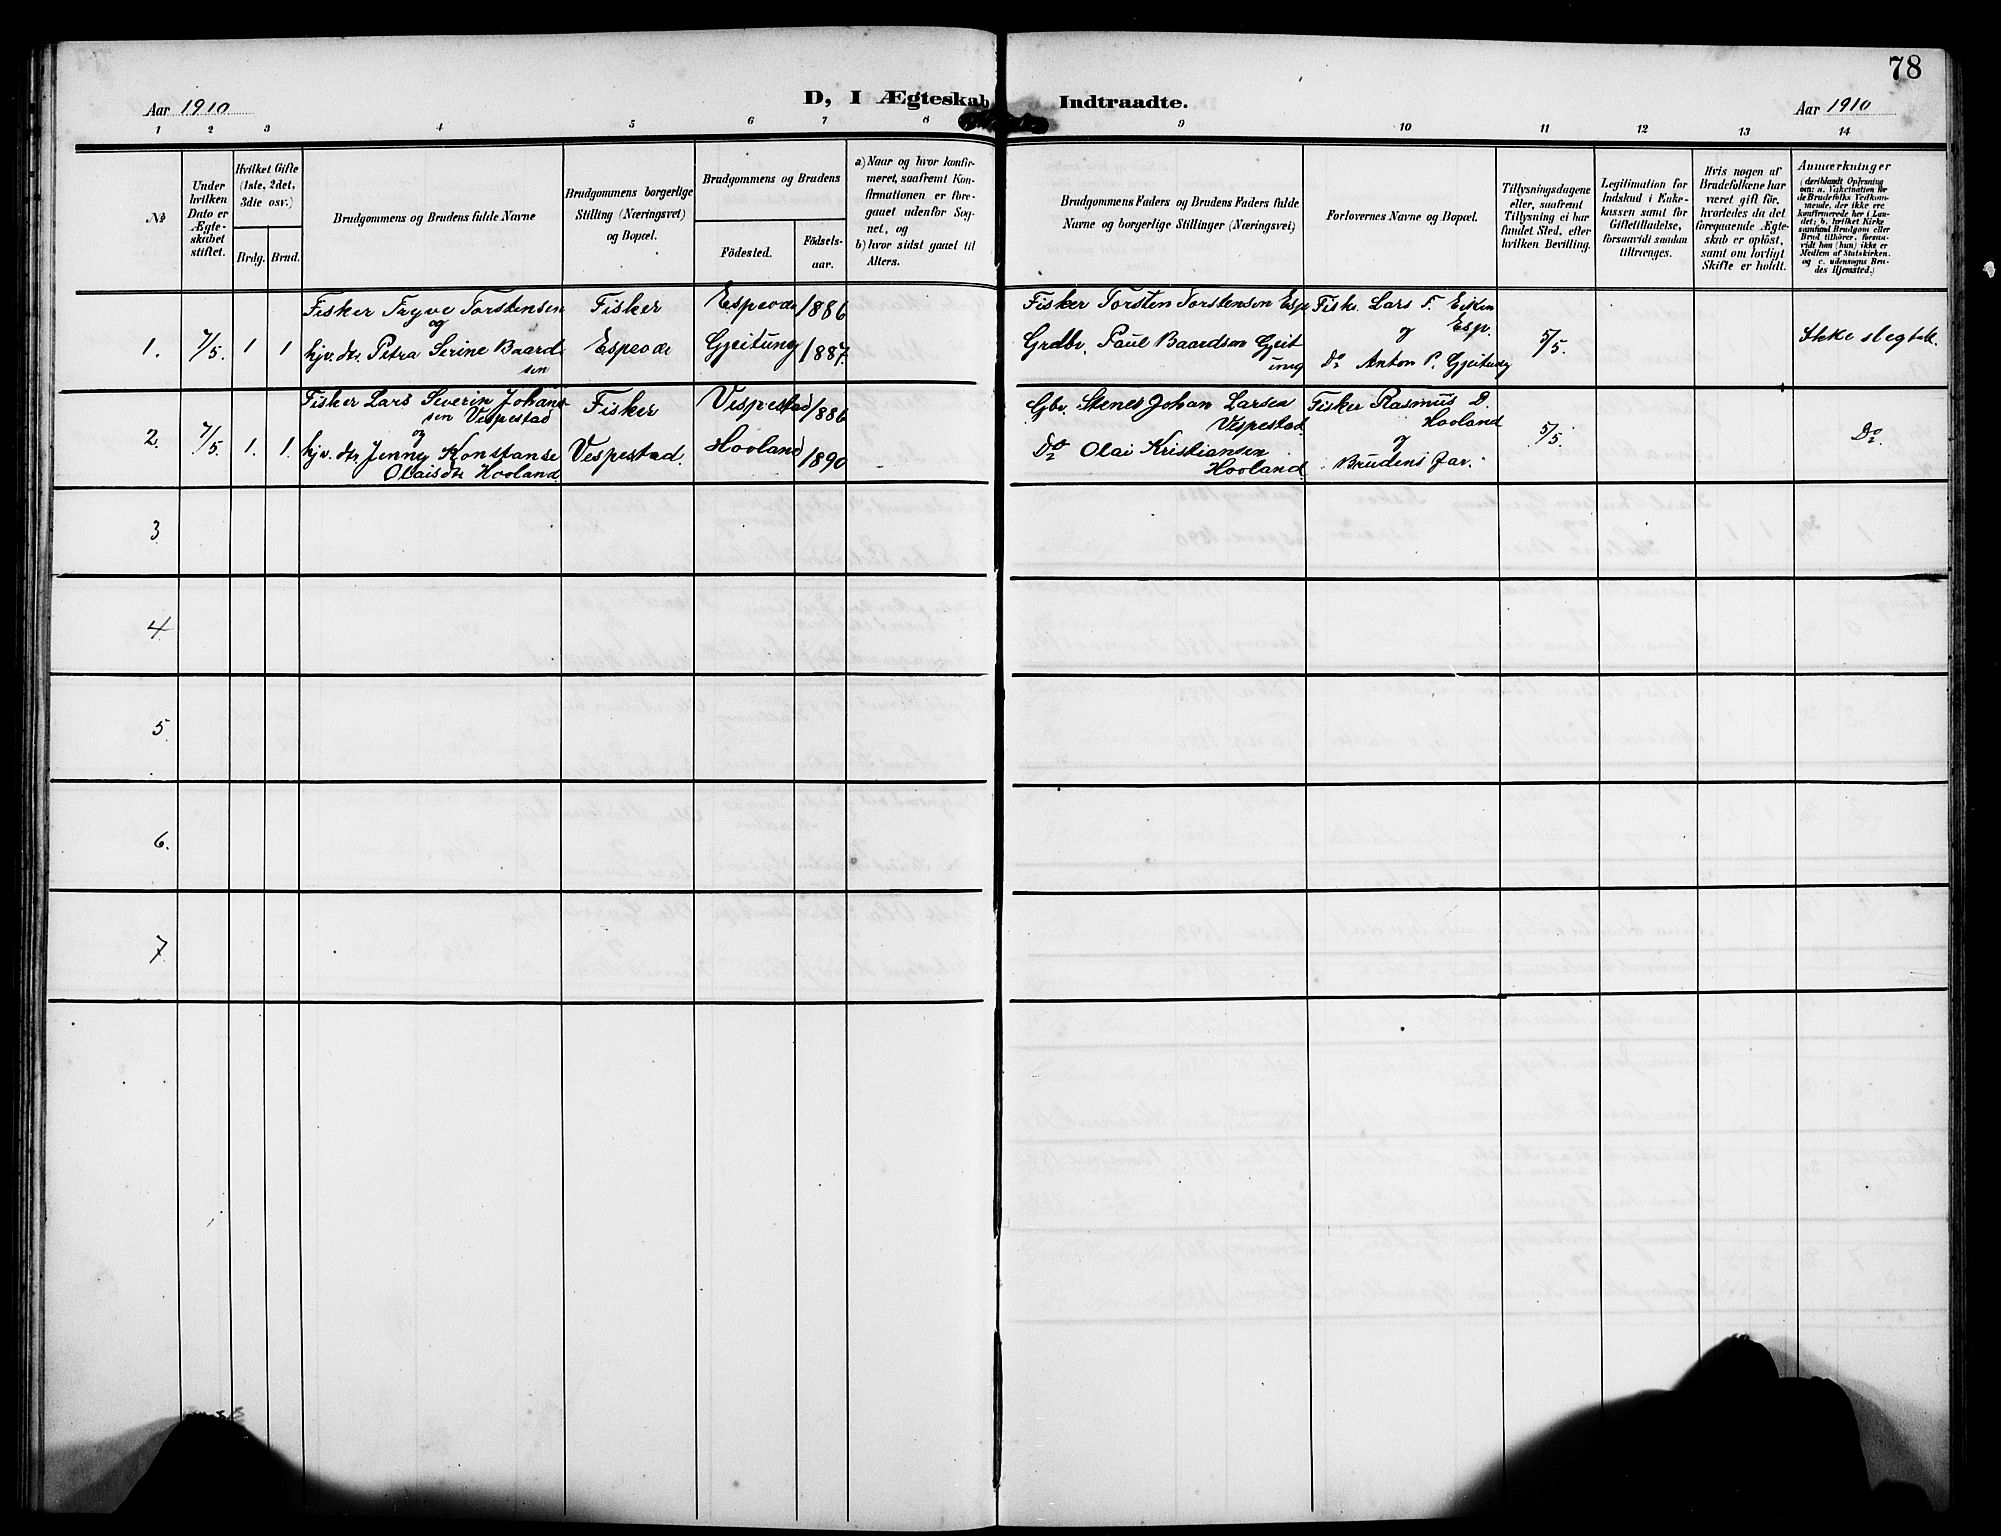 78
Aar 1910
D, I Ægteskab Indtraadte.
Aar 1910
1 2 3 4 5 6 7 8 9 10 11 12 13 14
No
Under
hvilken
Dato er
Ægte-
skabet
stiftet.
Hvilket Gifte
(1ste, 2det,
3die osv.)
Brdg. Brud.
Brudgommens og Brudens fulde Navne
Brudgommens borgerlige
Stilling (Næringsvei)
og Bopæl.
Brudgommens og Brudens
Födested.
Födsels-
aar.
a) Naar og hvor konfir-
meret, saafremt Kon-
firmationen er fore-
gaaet udenfor Sog-
net, og
b) hvor sidst gaaet til
Alters.
Brudgommens Faders og Brudens Faders fulde
Navne og borgerlige Stillinger (Næringsvei)
Forlovernes Navne og Bopæl.
Tillysningsdagene
eller, saafremt
Tillysning ei har
fundet Sted, efter
hvilken Bevilling.
Legitimation for
Indskud i Enke-
kassen samt for
Giftetilladelse,
forsaavidt saadan
tiltrænges.
Hvis nogen af
Brudefolkene har
været gift før,
hvorledes da det
foregaaende Ægte-
skab er oplöst,
samt om lovligt
Skifte er holdt.
Anmærkninger
(deriblandt Oplysning
om: a. Vakcination for
de Brudefolks Vedkom-
mende, der ikke ere
konfirmerede her i Lan-
det; b. hvilket Kirke
samfund Brudgom eller
Brud tilhörer, forsaa-
vidt han (hun) ikke er
Medlem af Statskirken.
og c. udensogns Bru-
des Hjemsted.)
1. 7/5. 1 1
Fisker Tryve Torstensen
og
hjv. dtr. Petra Serine Baard
sen
Fisker
Espevær
Espevær 1886
Gjeitung 1887.
Fisker Torsten Torstensen Esp
Grdbr. Paul Baardsen Gjeit
ung
Fisk. Lars T. Eiken
Esp.
og
Do Anton P. Gjeitung
5/5.
Ikke slegtsk.
2. 7/5. 1. 1.
Fisker Lars Severin Johan
sen Vespestad
og
hjv. dtr Jenny Konstanse
Olaisdtr Hovland
Fisker
Vespestad.
Vespestad 1886
Hovland 1890
Gbr. Stenes Johan Larsen
Vespestad.
Do Olai Kristiansen
Hovland.
Fisker Rasmus D.
Hovland
og
Brudens far.
5/5.
Do.
3
4
5
6.
7.